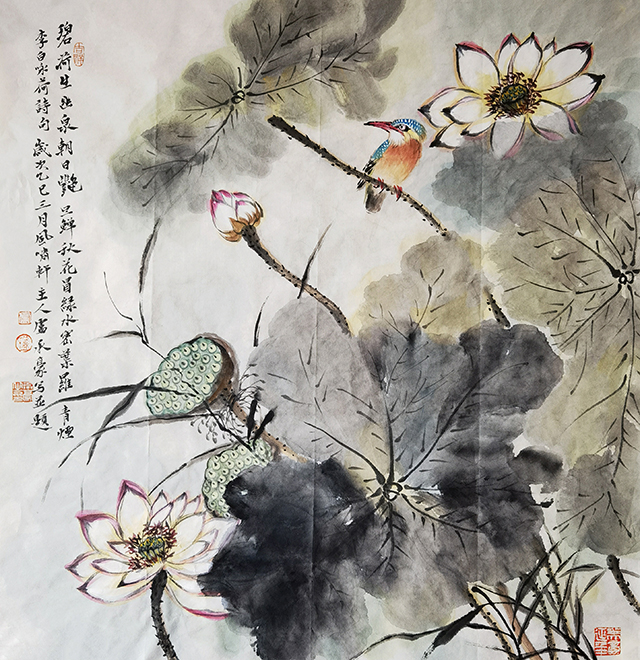 碧荷生幽泉朝日艷且鮮秋花冒綠水密葉羅青煙
李白咏荷詩句歲次乙巳三月風嘯軒主人雷永豪写並題